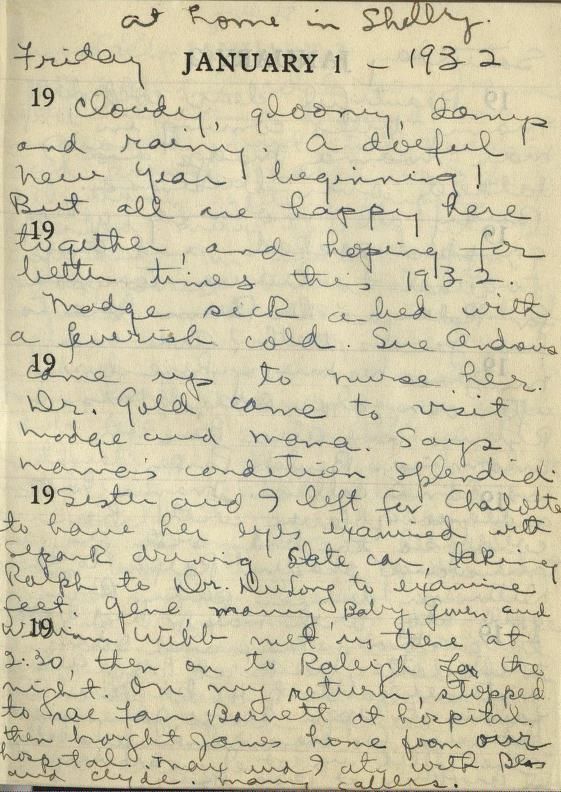 at home in Shelby.
Friday JANUARY 1 - 1932
19 Cloudy, gloomy, damp
and rainy. A doleful
New Year beginning!
But all are happy here
19
together, and hoping for
better times this 1932.
Madge sick a-bed with
a feverish cold. Sue Andrews
19
came up to nurse her.
Dr. Gold came to visit
Madge and mama. Says
mama's condition splendid.
19 Sister and I left for Charlotte
to have her eyes examined with
driving State car, taking
Ralph to Dr. to examine
feet. Gene, Baby Gwen, and
19
William Webb met us there at
2:30, then on to Raleigh for the
night. On my return, stopped
to see Fan Barnett at hospital.
then brought James home from our
hospital. Max and I at with Bess
and Clyde. Many callers.